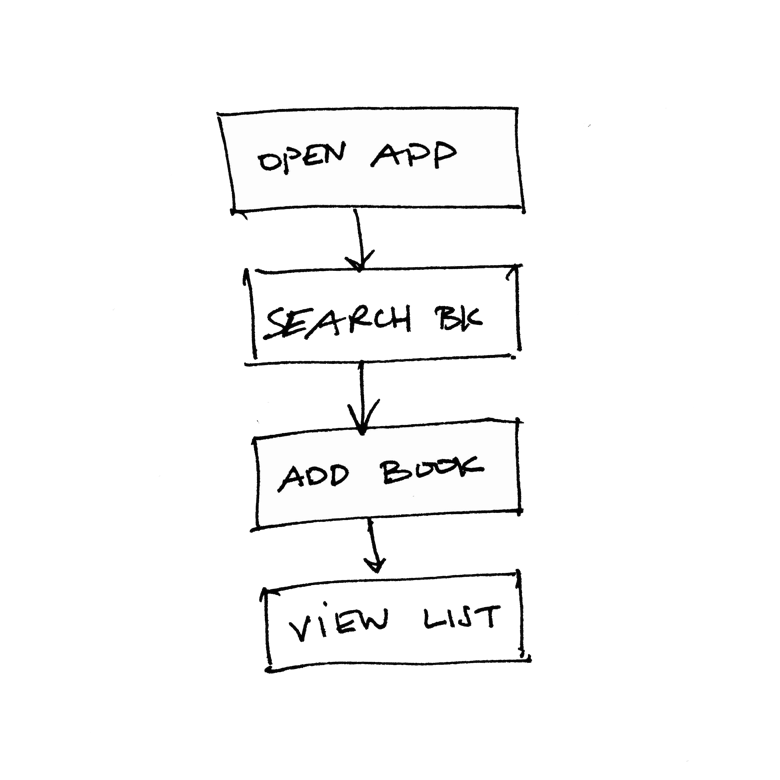 OPEN APP
SEARCH BK
ADD BOOK
VIEW LIST